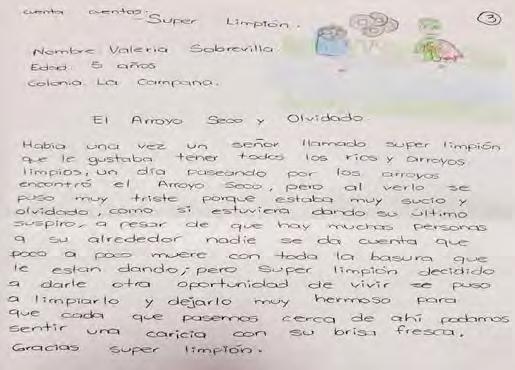 cuenta cuentos:
Super Limpión.
3
Nombre Valeria Sobrevilla
Edad: 5 años
Colonia: La Campana.
El Arroyo Seco y Olvidado
Había una vez un señor llamado super limpión
que le gustaba tener todos los ríos y arroyos
limpios, un día paseando por los arroyos
encontró el Arroyo Seco, pero al verlo se
puso muy triste porque estaba muy sucio y
olvidado, como si estuviera dando su último
suspiro, a pesar de que hay muchas personas
a su alrededor nadie se da cuenta que
poco a poco muere con toda la basura que
le estan dando; pero Super limpión decidido
a darle otra oportunidad de vivir se puso
a limpiarlo y dejarlo muy hermoso para
que cada que pasemos cerca de ahí podamos
sentir una caricia con su brisa fresca.
Gracias super limpión.